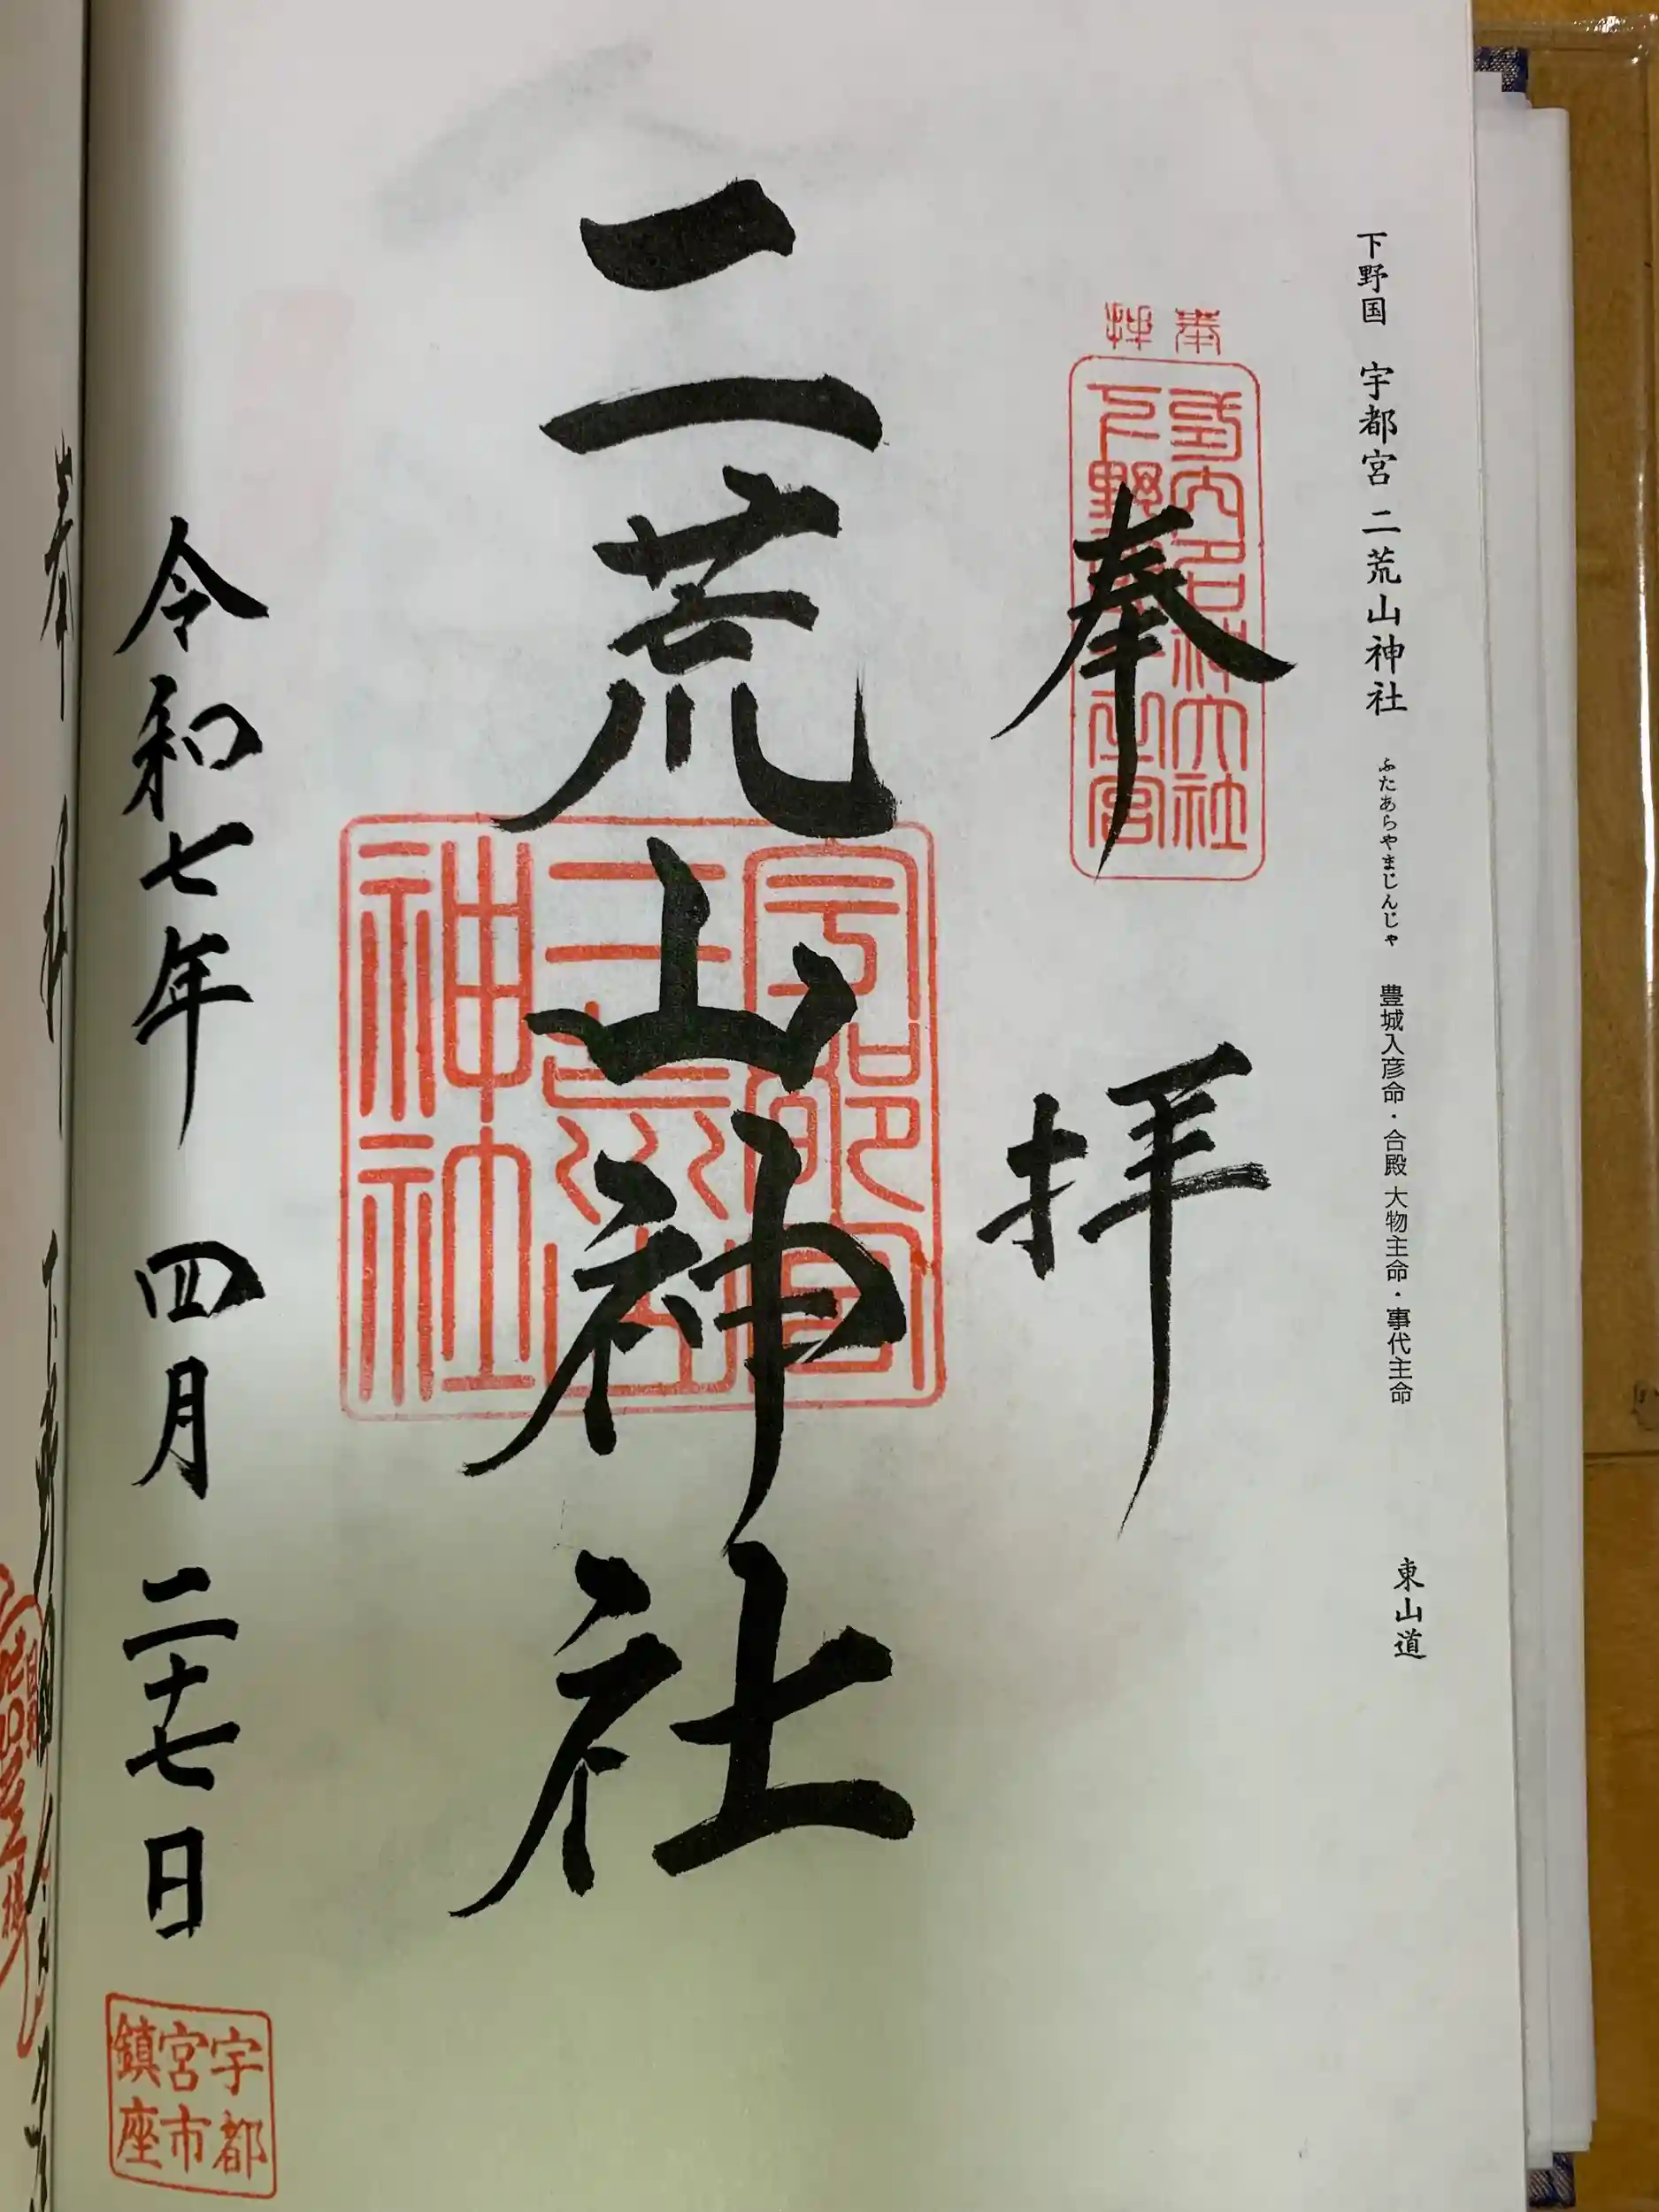 下野国 宇都宮 二荒山神社 ふたあらやまじんじゃ 豊城入彦命・合殿 大物主命・事代主命 東山道
奉拝
式内名神大社
下野
宮
奉 拝
二荒山神社
宇都宮
二荒山
神社
令和七年 四月 二十七日
宇都
宮市
鎮座
奉 拝